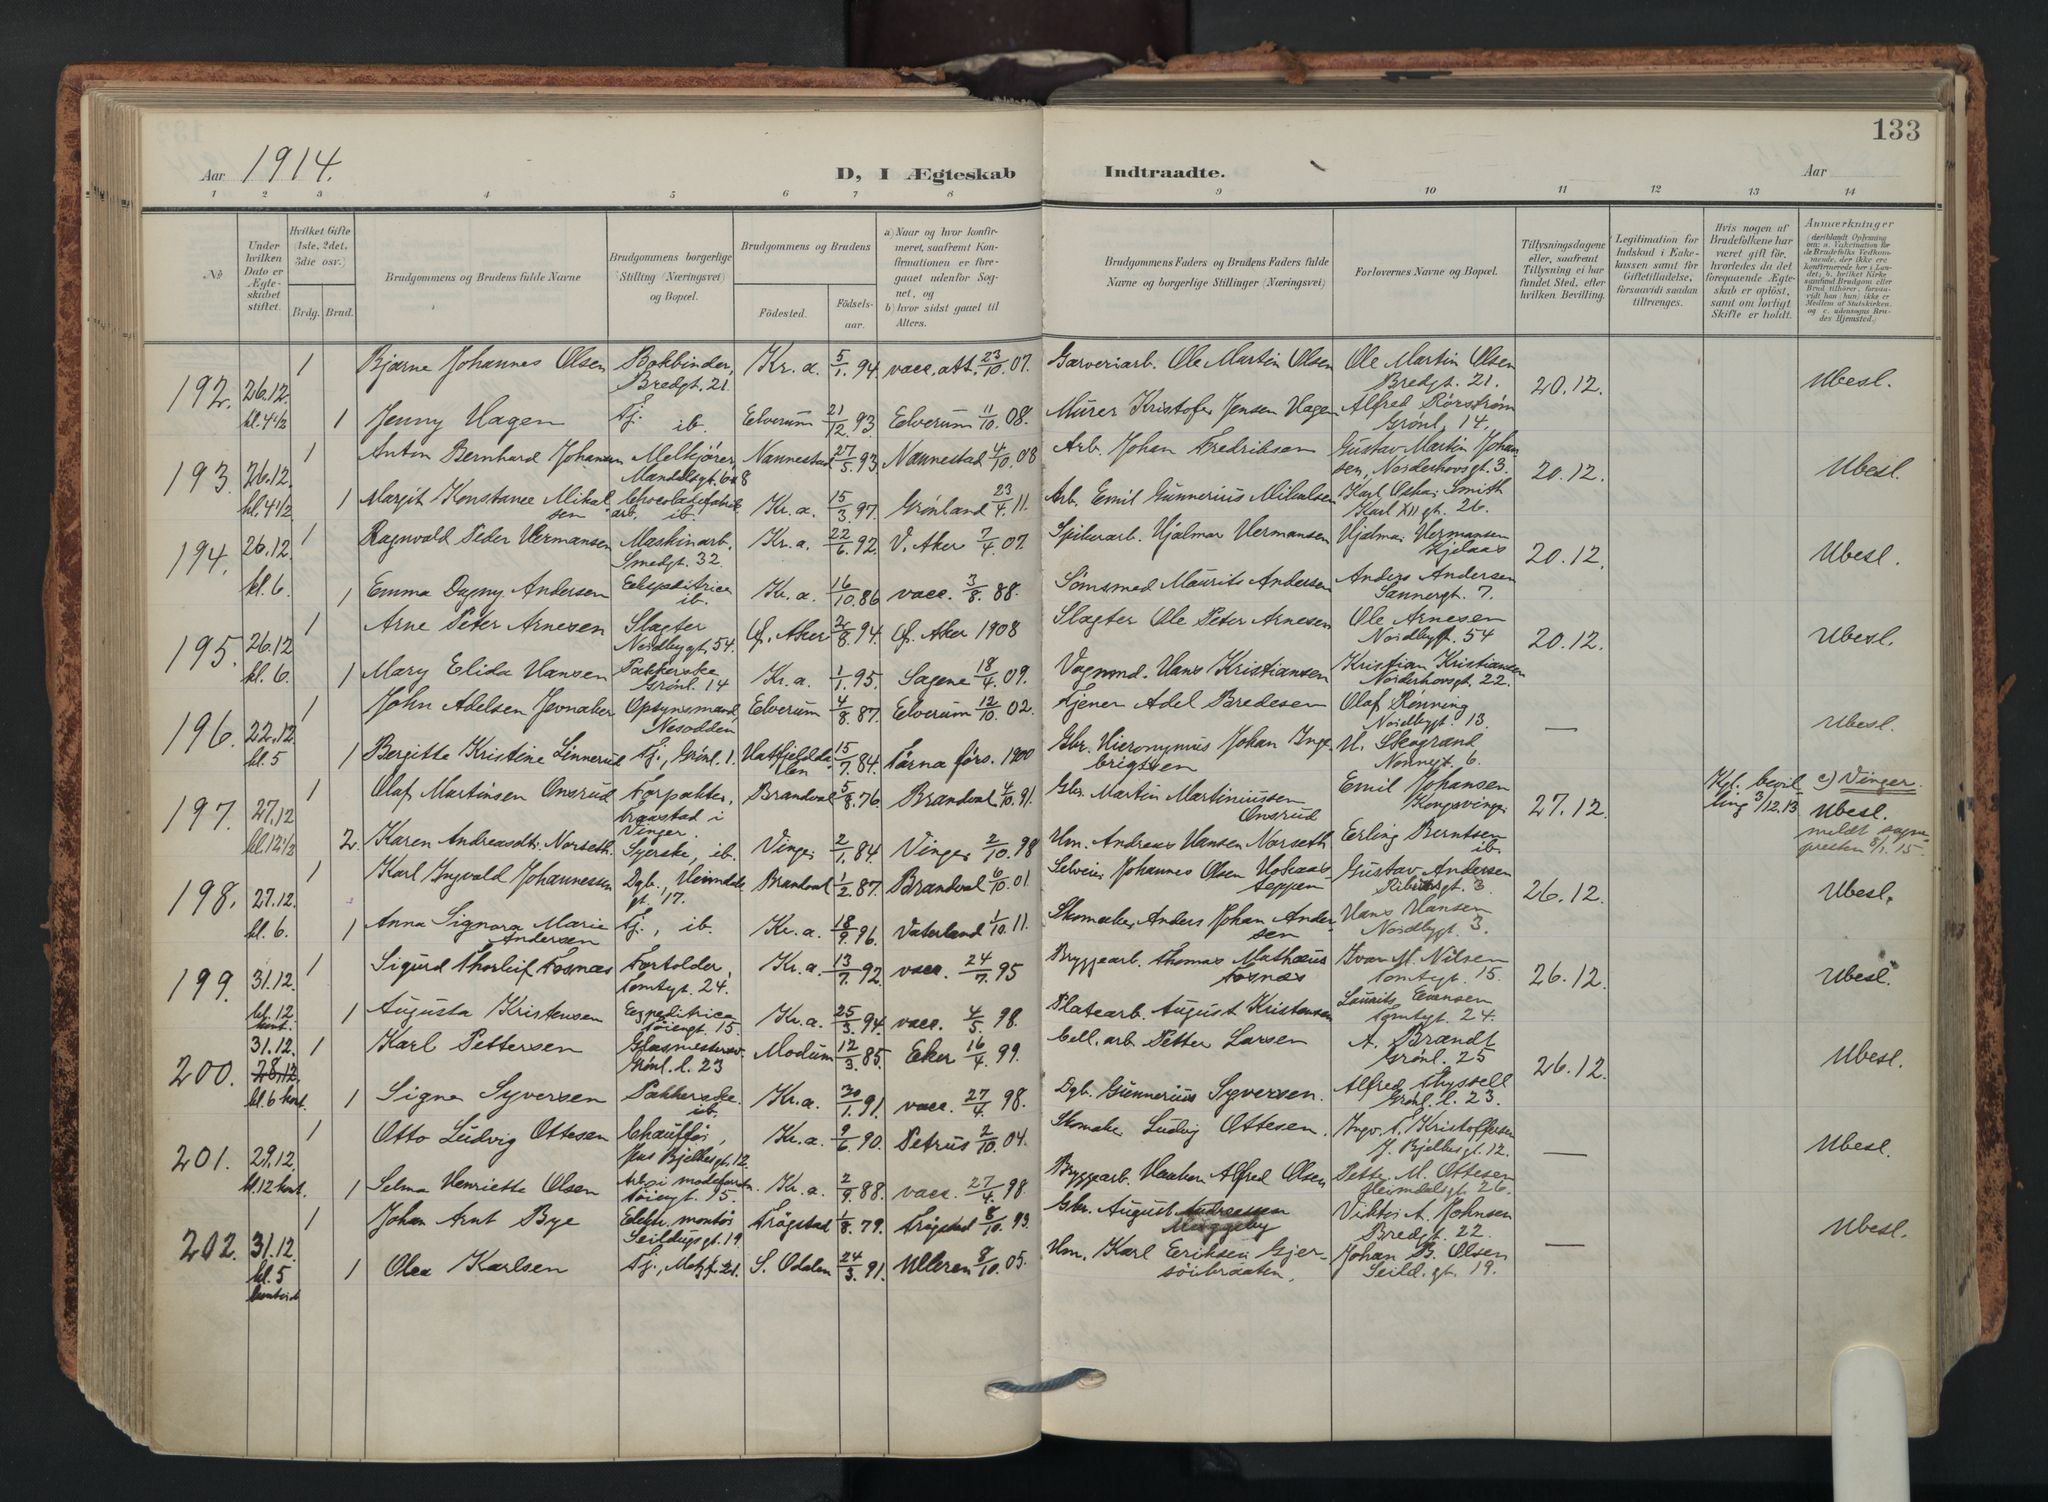 133
Aar 1914.
D, I Ægteskab Indtraadte.
Aar
1 2 3 4 5 6 7 8 9 10 11 12 13 14
No
Under hvilken Dato er Ægteskabet stiftet.
Hvilket Gifte (1ste, 2det, 3die osv.)
Brdg. Brud.
Brudgommens og Brudens fulde Navne
Brudgommens borgerlige Stilling (Næringsvei) og Bopæl.
Brudgommens og Brudens
Fødested. Fødselsaar.
a) Naar og hvor konfirmeret, saafremt Konfirmationen er foregaaet udenfor Sognet, og b) hvor sidst gaaet til Alters.
Brudgommens Faders og Brudens Faders fulde Navne og borgerlige Stillinger (Næringsvei)
Forlovernes Navne og Bopæl.
Tillysningsdagene eller, saafremt Tillysning ei har fundet Sted, efter hvilken Bevilling.
Legitimation for Indskud i Enkekassen samt for Giftetilladelse, forsaavidt saadan tiltrænges.
Hvis nogen af Brudefolkene har været gift før, hvorledes da det foregaaende Ægteskab er opløst, samt om lovligt Skifte er holdt.
Anmærkninger
192. 26.12 kl. 4 1/2 1 Bjarne Johannes Olsen Bokbinder, Bredgt. 21. Kr.a. 5/1. 94. vacc. att. 23/10. 07. Garveriarb. Ole Martin Olsen Ole Martin Olsen Bredgt. 21. 20.12. Ubesl.
1 Jenny Hagen Tj. ib. Elverum 21/12. 93. Elverum 11/10. 08. Murer Kristofer Jensen Hagen Alfred Rørstrøm Grønl. 14.
193. 26.12. kl. 4 1/2 1 Anton Bernhard Johansen Melkjører, Mandalsgt. 6 Nannestad 27/5. 93 Nannestad 4/10. 08 Arb. Johan Fredriksen Gustav Martin Johansen, Norderhovsgt. 3. 20.12. Ubesl.
1 Margit Konstance Mikalsen Chocoladefabrikarb. ib. Kr.a. 15/3. 97. Grønland 23/4. 11. Arb. Emil Gunnerius Mikalsen Karl Oskar Smith Karl XII gt. 26.
194. 26.12. kl. 6. 1 Ragnvald Peder Hermansen Maskinarb. Smedgt. 32. Kr.a. 22/6. 92. V. Aker 7/4. 07. Spikerarb. Hjalmar Hermansen Hjalmar Hermansen 20.12. Ubesl.
1 Emma Dagny Andersen Ekspeditrice ib. Kr.a. 16/10. 86 vacc. 3/8. 88. Sømsmed Maurits Andersen Anders Andersen Sannergt. 7.
195. 26.12 kl. 6. 1 Arne Peter Arnesen Slagter Nordbygt. 54. Ø. Aker 2/8. 94. Ø. Aker 1908 Slagter Ole Peter Arnesen Ole Arnesen Nordbygt. 54 20.12. Ubesl.
1 Mary Elida Hansen Pakkerske Grønl. 14 Kr.a. 1/1. 95. Sagene 18/4. 09. Vognmd. Hans Kristiansen Kristian Kristiansen Norderhovsgt. 22.
196. 22.12. kl. 5 1 John Adelsen Jevnaker Opsynsmand, Nesodden Elverum 4/8. 87. Elverum 12/10. 02. Tjener Adel Bredesen Olaf Rønning Nordbygt. 13. — Ubesl.
1 Bergitte Kristine Linnerud Tj., Grønl. 1. Hatfjelddalen 15/7. 84. Tärna förs. 1900 Gbr. Hieronymus Johan Ingebrigtsen H. Skogrand 6.
197. 27.12 kl. 12 1/2 1 Olaf Martinsen Onsrud Forpakter, i Vinger. Brandval 5/8. 76. Brandval 4/10. 91. Gbr. Martin Martiniussen Onsrud Emil Johansen Kongsvinger 27.12. Kgl. bevilling 3/12. 13 c) Vinger. Ubesl. meldt sognepresten 8/1. 15.
2. Karen Andreasdt. Norseth. Syerske, ib. Vinger 2/1. 84. Vinger 2/10. 98 Hm. Andreas Hansen Norseth Erling Berntsen ib.
198. 27.12. kl. 6. 1 Karl Ingvald Johannessen Dgb., Heimdalsgt. 17. Brandval 1/2. 87. Brandval 6/10. 01. Selveier Johannes Olsen Gustav Andersen gt. 3. 26.12. Ubesl.
1 Anna Signora Marie Andersen Tj., ib. Kr.a. 18/9. 96. Vaterland 1/10. 11. Skomaker Anders Johan Andersen Hans Hansen Nordbygt. 3.
199. 31.12. kl. 12 kont. 1 Sigurd Thorleif Fosnæs Fortolder, Tomtegt. 24. Kr.a. 13/7. 92. vacc. 24/7. 95 Bryggearb. Thomas Mathæus Fosnæs Ivar M. Nilsen Tomtegt. 15. 26.12. Ubesl.
1 Augusta Kristensen Expeditrice Tøiengt. 15 Kr.a. 25/3. 94. vacc. 4/5. 98. Platearb. August Kristensen Laurits Evensen Tomtegt. 24.
200. 31.12. 28.12. kl. 6 kont. 1 Karl Pettersen Glasmestersv. Grønl. l. 23 Modum 12/3. 85. Eker 16/4. 99. Cell. arb. Petter Larsen A. Brandt Grønl. 25 26.12. Ubesl.
1 Signe Syversen Pakkerske ib. Kr.a. 30/1. 91. vacc. 27/4. 98. Dgb. Gunnerius Syversen. Alfred Thysell Grønl. l. 23.
201. 29.12. kl. 12 kont. 1 Otto Ludvig Ottesen Chauffør, Jens Bjelkesgt. 12. Kr.a. 9/6. 90. Petrus 2/10. 04. Skomaker Ludvig Ottesen. Ingv. A. Kristoffersen J. Bjelkesgt. 12. — Ubesl.
1 Selma Henriette Olsen Arb. i modeforretn. Tøiengt. 15. Kr.a. 2/9. 88. vacc. 27/4. 98. Bryggearb. Haaken Alfred Olsen Petter M. Ottesen Heimdalsgt. 26.
202. 31.12. kl. 5 1 Johan Arnt Bye Elektr. montør Seildugsgt. 19 Trøgstad 1/8. 79. Trøgstad 8/10. 93. Gbr. August Andreassen Muggeby Viktor A. Johnsen Bredgt. 22. — Ubesl.
1 Olea Karlsen Tj., 21. S. Odalen 24/3. 91. Ulleren 8/10. 05. Hm. Karl Eriksen Gjersøibraaten, Johan B. Olsen Seild.gt. 19.